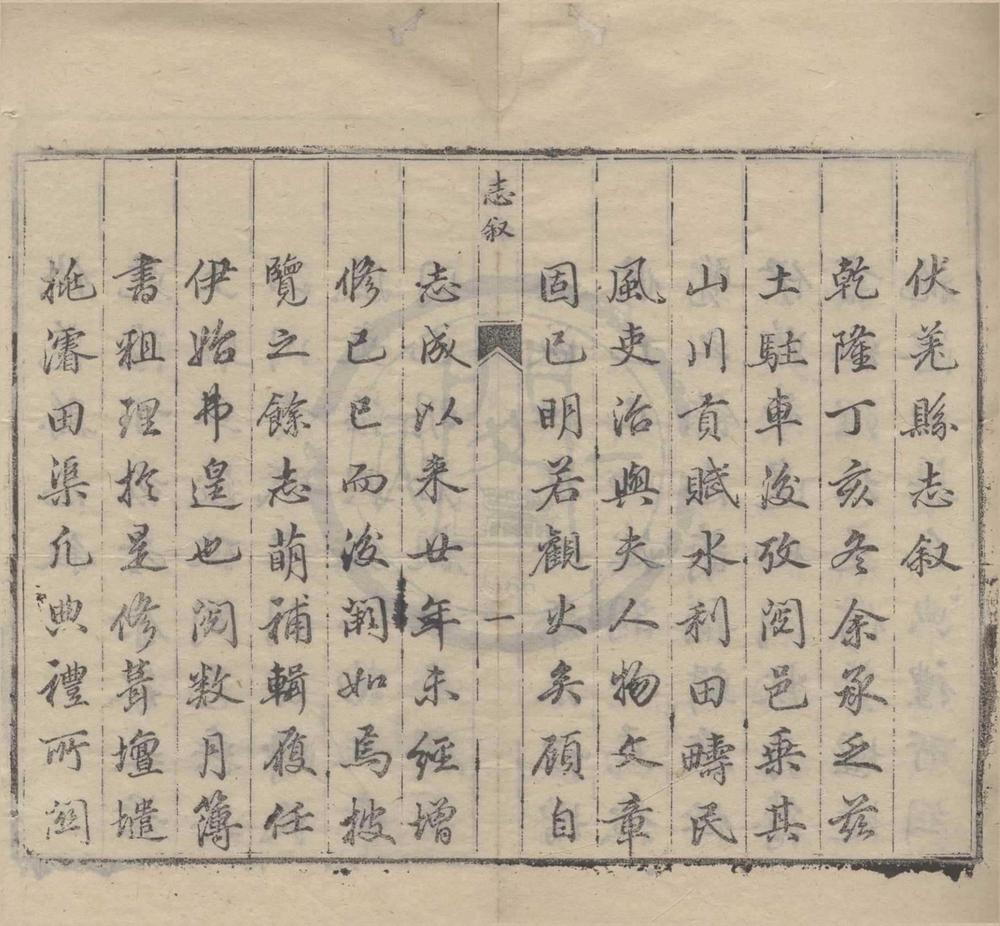 伏羌縣志叙
乾隆丁亥冬余承乏茲
土駐車後攷閱邑乘其
山川貢賦水利田疇民
風吏治與夫人物文章
固已明若觀火矣顧自
志叙
一
志成以来廿年未經增
修己巳而後闕如焉披
覽之餘志萌補輯履任
伊始弗遑也閱数月簿
書粗理於是修葺壇壝
挑濬田渠凡典禮所關